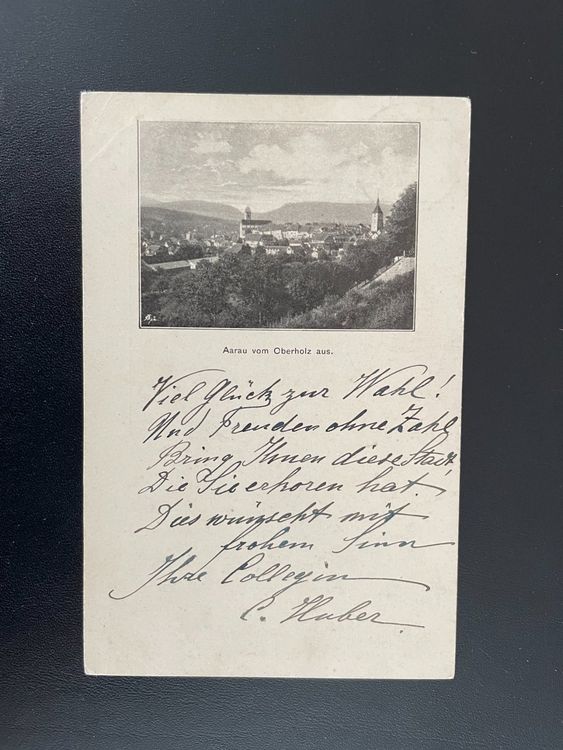 Aarau vom Oberholz aus.
Viel Glück zur Wahl!
Und Freuden ohne Zahl
Bring Ihnen diese Stadt,
Die Sie erkoren hat.
Dies wünscht mit
frohem Sinn
Ihre Collegin
C. Huber.